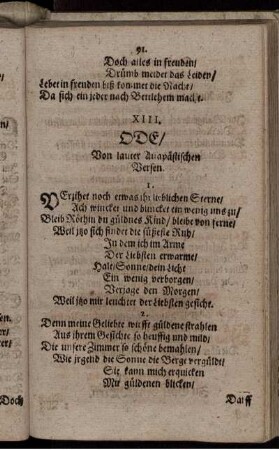 91.
Doch alles in freuden/
Drümb meidet das Leiden/
Lebet in freuden biß kommet die Nacht/
Da sich ein jeder nach Bettlehem macht.
XIII.
ODE/
Von lauter Anapästischen
Versen.
1.
VErzihet noch etwas ihr lieblichen Sterne/
Ach wincket und blincket ein wenig uns zu/
Bleib Röthin du güldnes Kind/ bleibe von ferne/
Weil itzo sich findet die süsseste Ruh/
In dem ich im Arme
Der Liebsten erwarme/
Halt Sonne/dein Licht
Ein wenig verborgen/
Verjage den Morgen/
Weil itzo mir leuchtet der Liebsten gesicht.
2.
Denn meine Geliebte wirfft güldene strahlen
Aus ihrem Gesichte so heuffig und mild/
Die unsere Zimmer so schöne bemahlen/
Wie irgend die Sonne die Berge vergüldt/
Sie kann mich erquicken
Mit güldenen blicken/
Doch